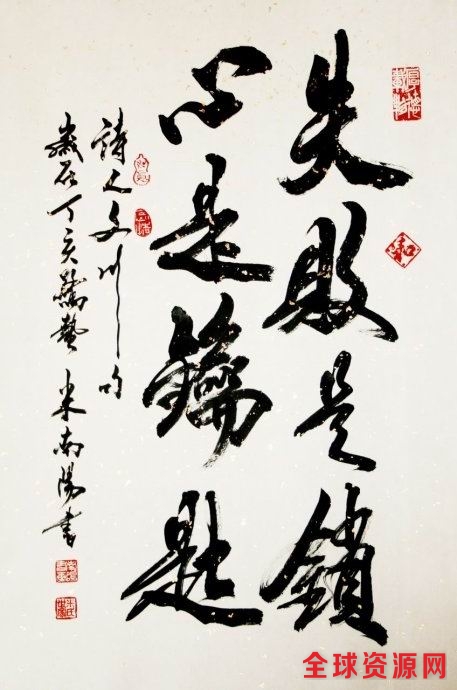 失敗是鎖
心是鑰匙
詩人文川句
歲在丁亥驚蟄 米南陽書
全球资源网